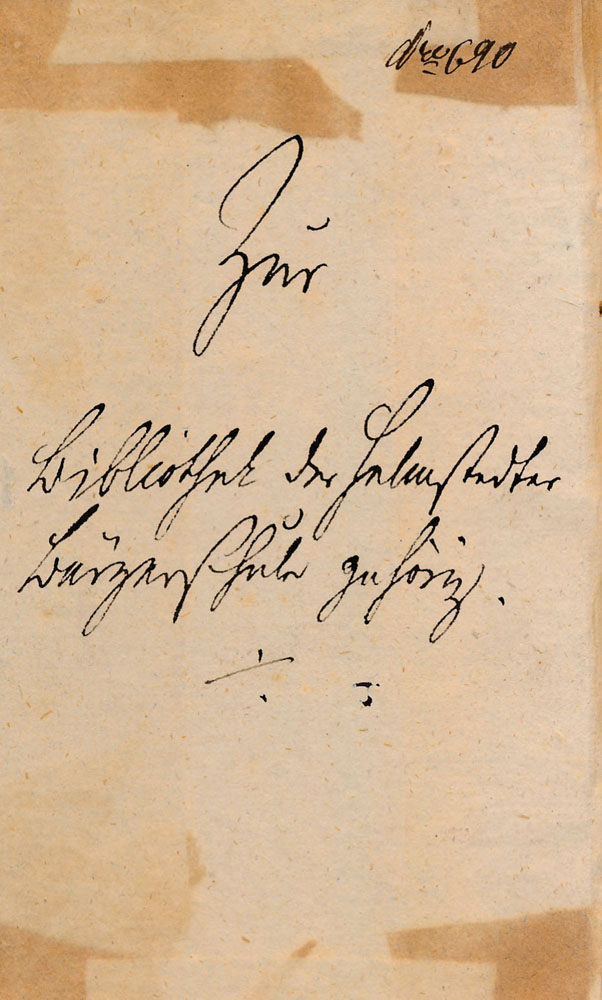 Nro 690
Zur
Bibliothek der Helmstedter
Bürgerschule gehörig.